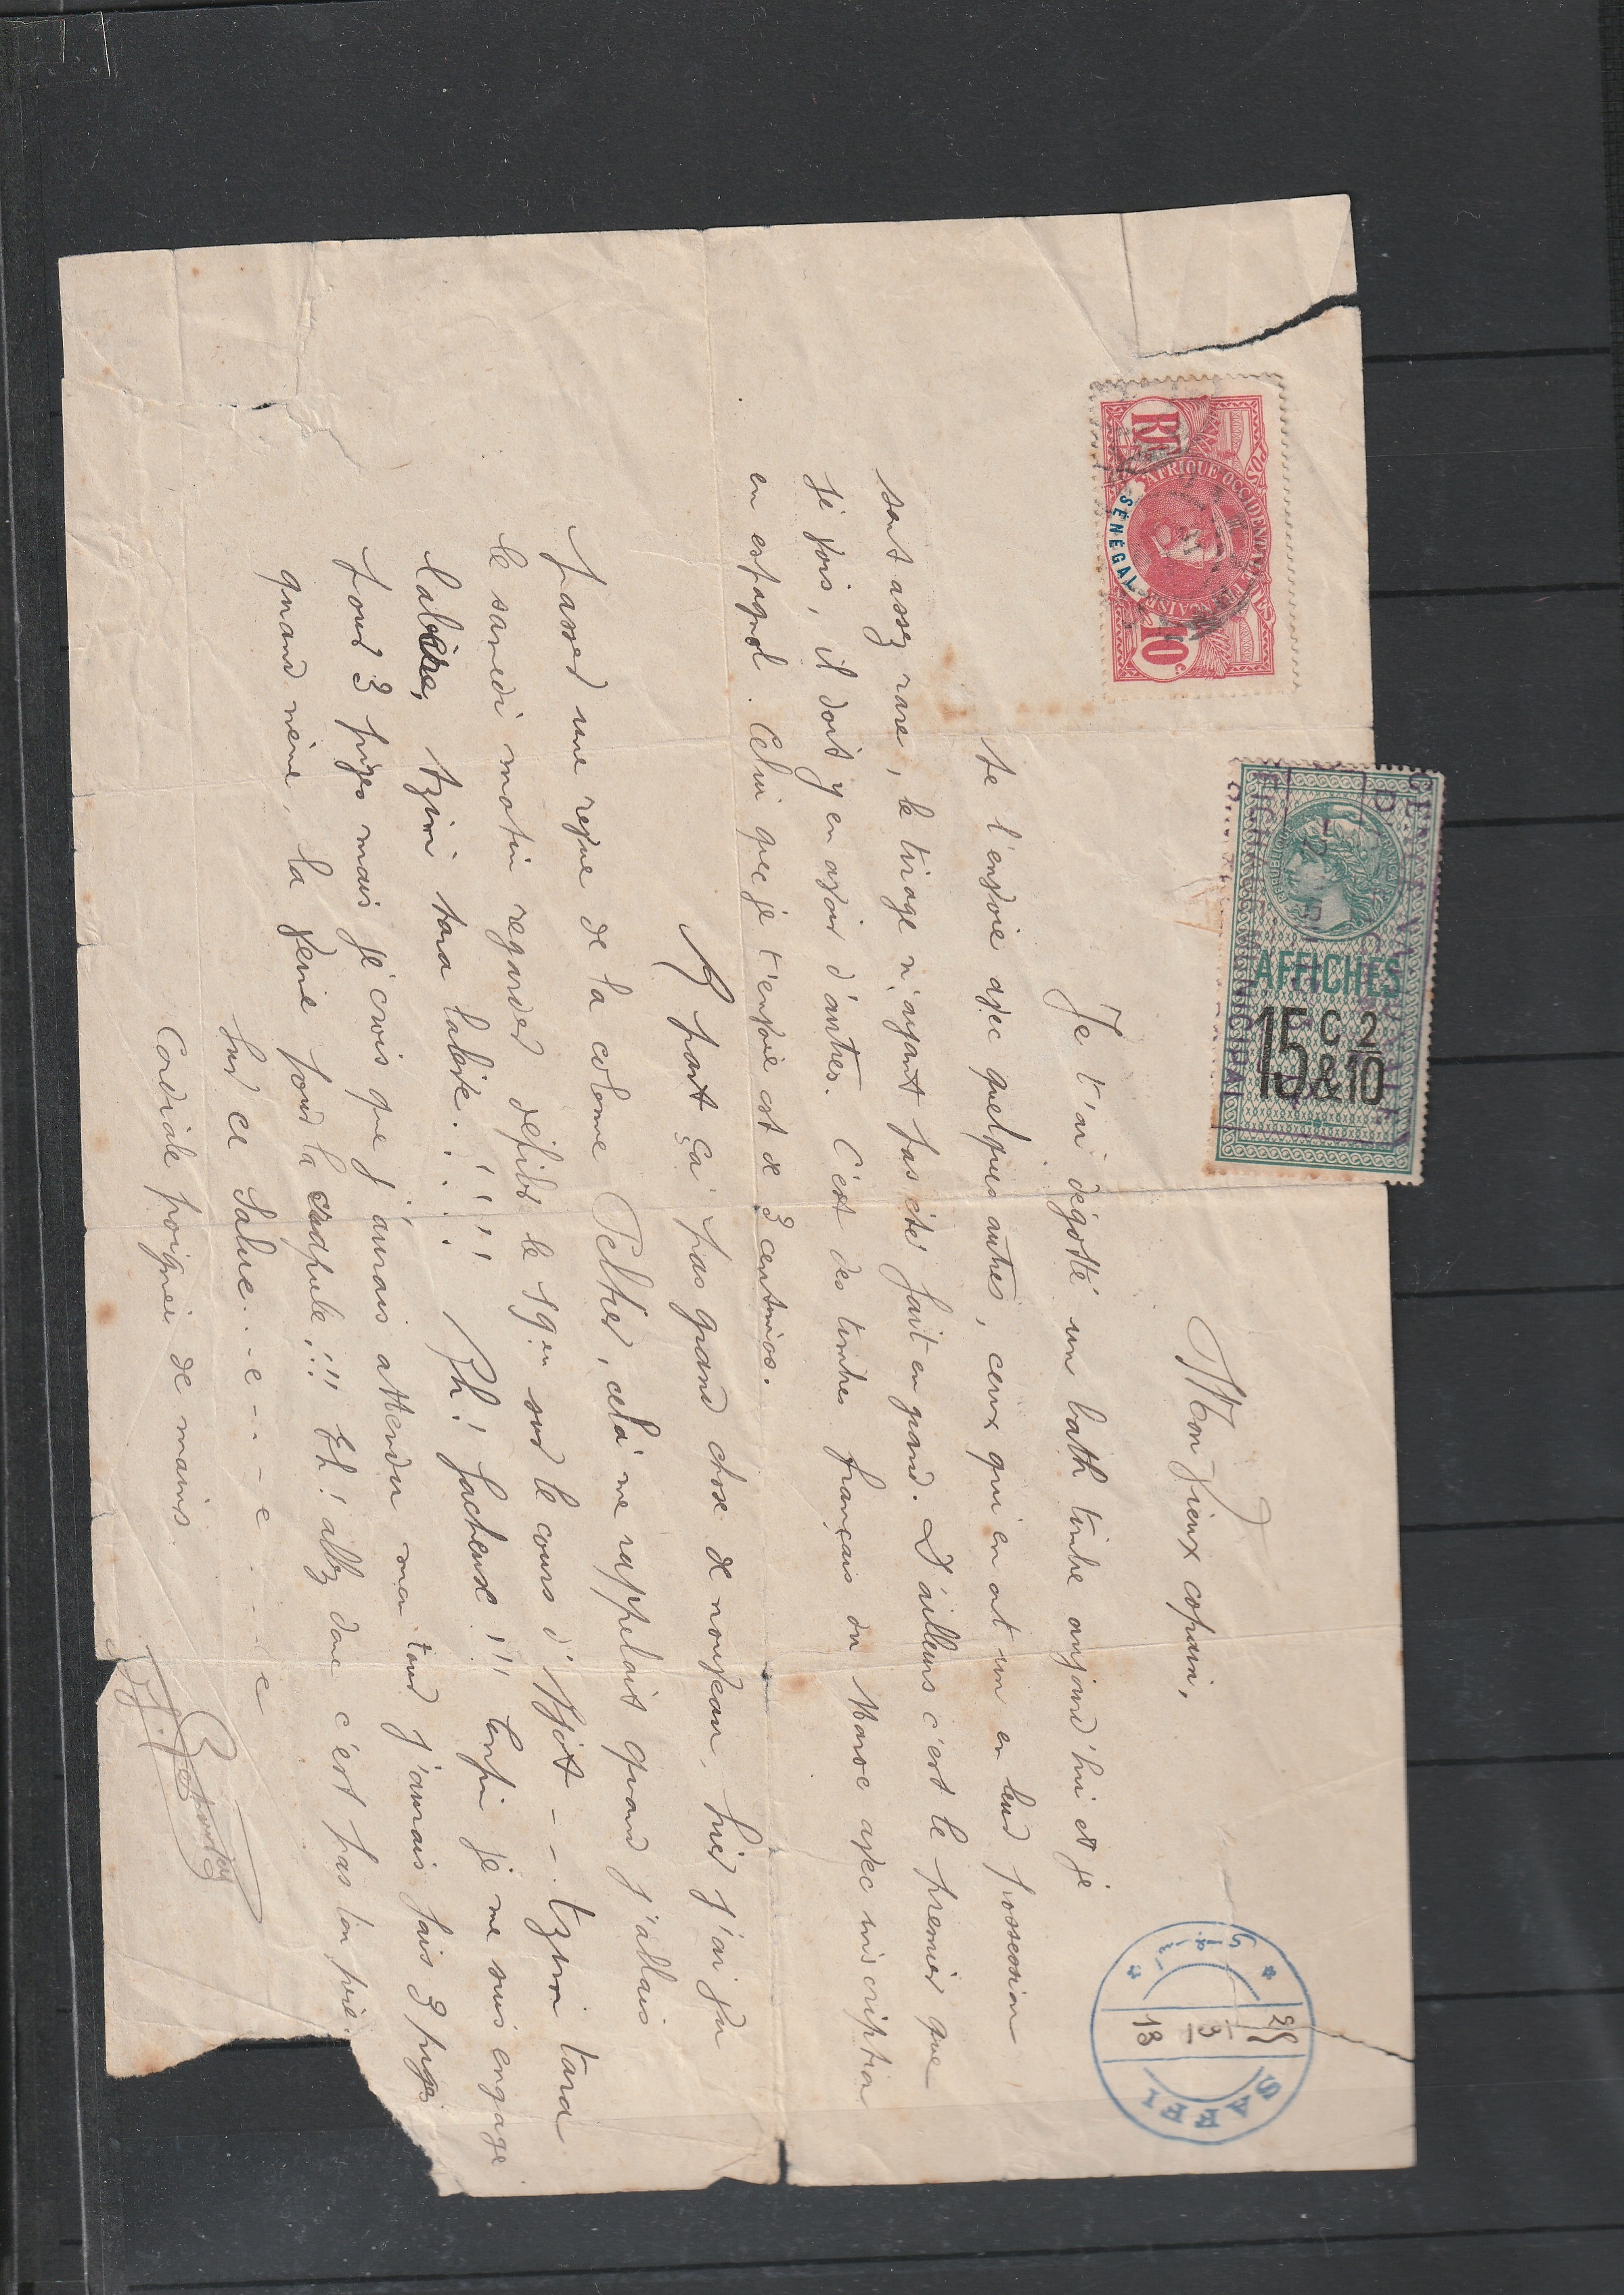 SAFFI
25
13
Mon vieux copain,
Je t'ai dégotté un bath timbre aujourd'hui et je
te l'envoie avec quelques autres, ceux qui en ont un en leur possession
sont assez rare, le tirage n'ayant pas été fait en grand. D'ailleurs c'est le premier que
je vois, il doit y en avoir d'autres. C'est des timbres français du Maroc avec inscription
en espagnol. Celui que je t'envoie est de 3 centimos.
A part ça pas grand chose de nouveau, hier j'ai vu
passer une revue de la colonne Peltier, cela me rappelait quand j'allais
le samedi matin regarder défiler le 19en sur le cours d'Ajot -- tzim tara
labère, tzim tara labère. . . ! ! ! ! Ah! facheuse !!! Enfin je me suis engagé
pour 3 piges mais je crois que j'aurais attendu mon tour j'aurais fais 3 piges
quand même, la ferie pour la crapule !!! Eh! allez donc c'est pas ton père.
Sur ce Salue...e...e...e
Cordiale poignée de mains
POSTES
AFRIQUE OCCIDENTALE FRANÇAISE
SÉNÉGAL
RF
10 c.
RÉPUBLIQUE FRANÇAISE
AFFICHES
15 c & 2/10